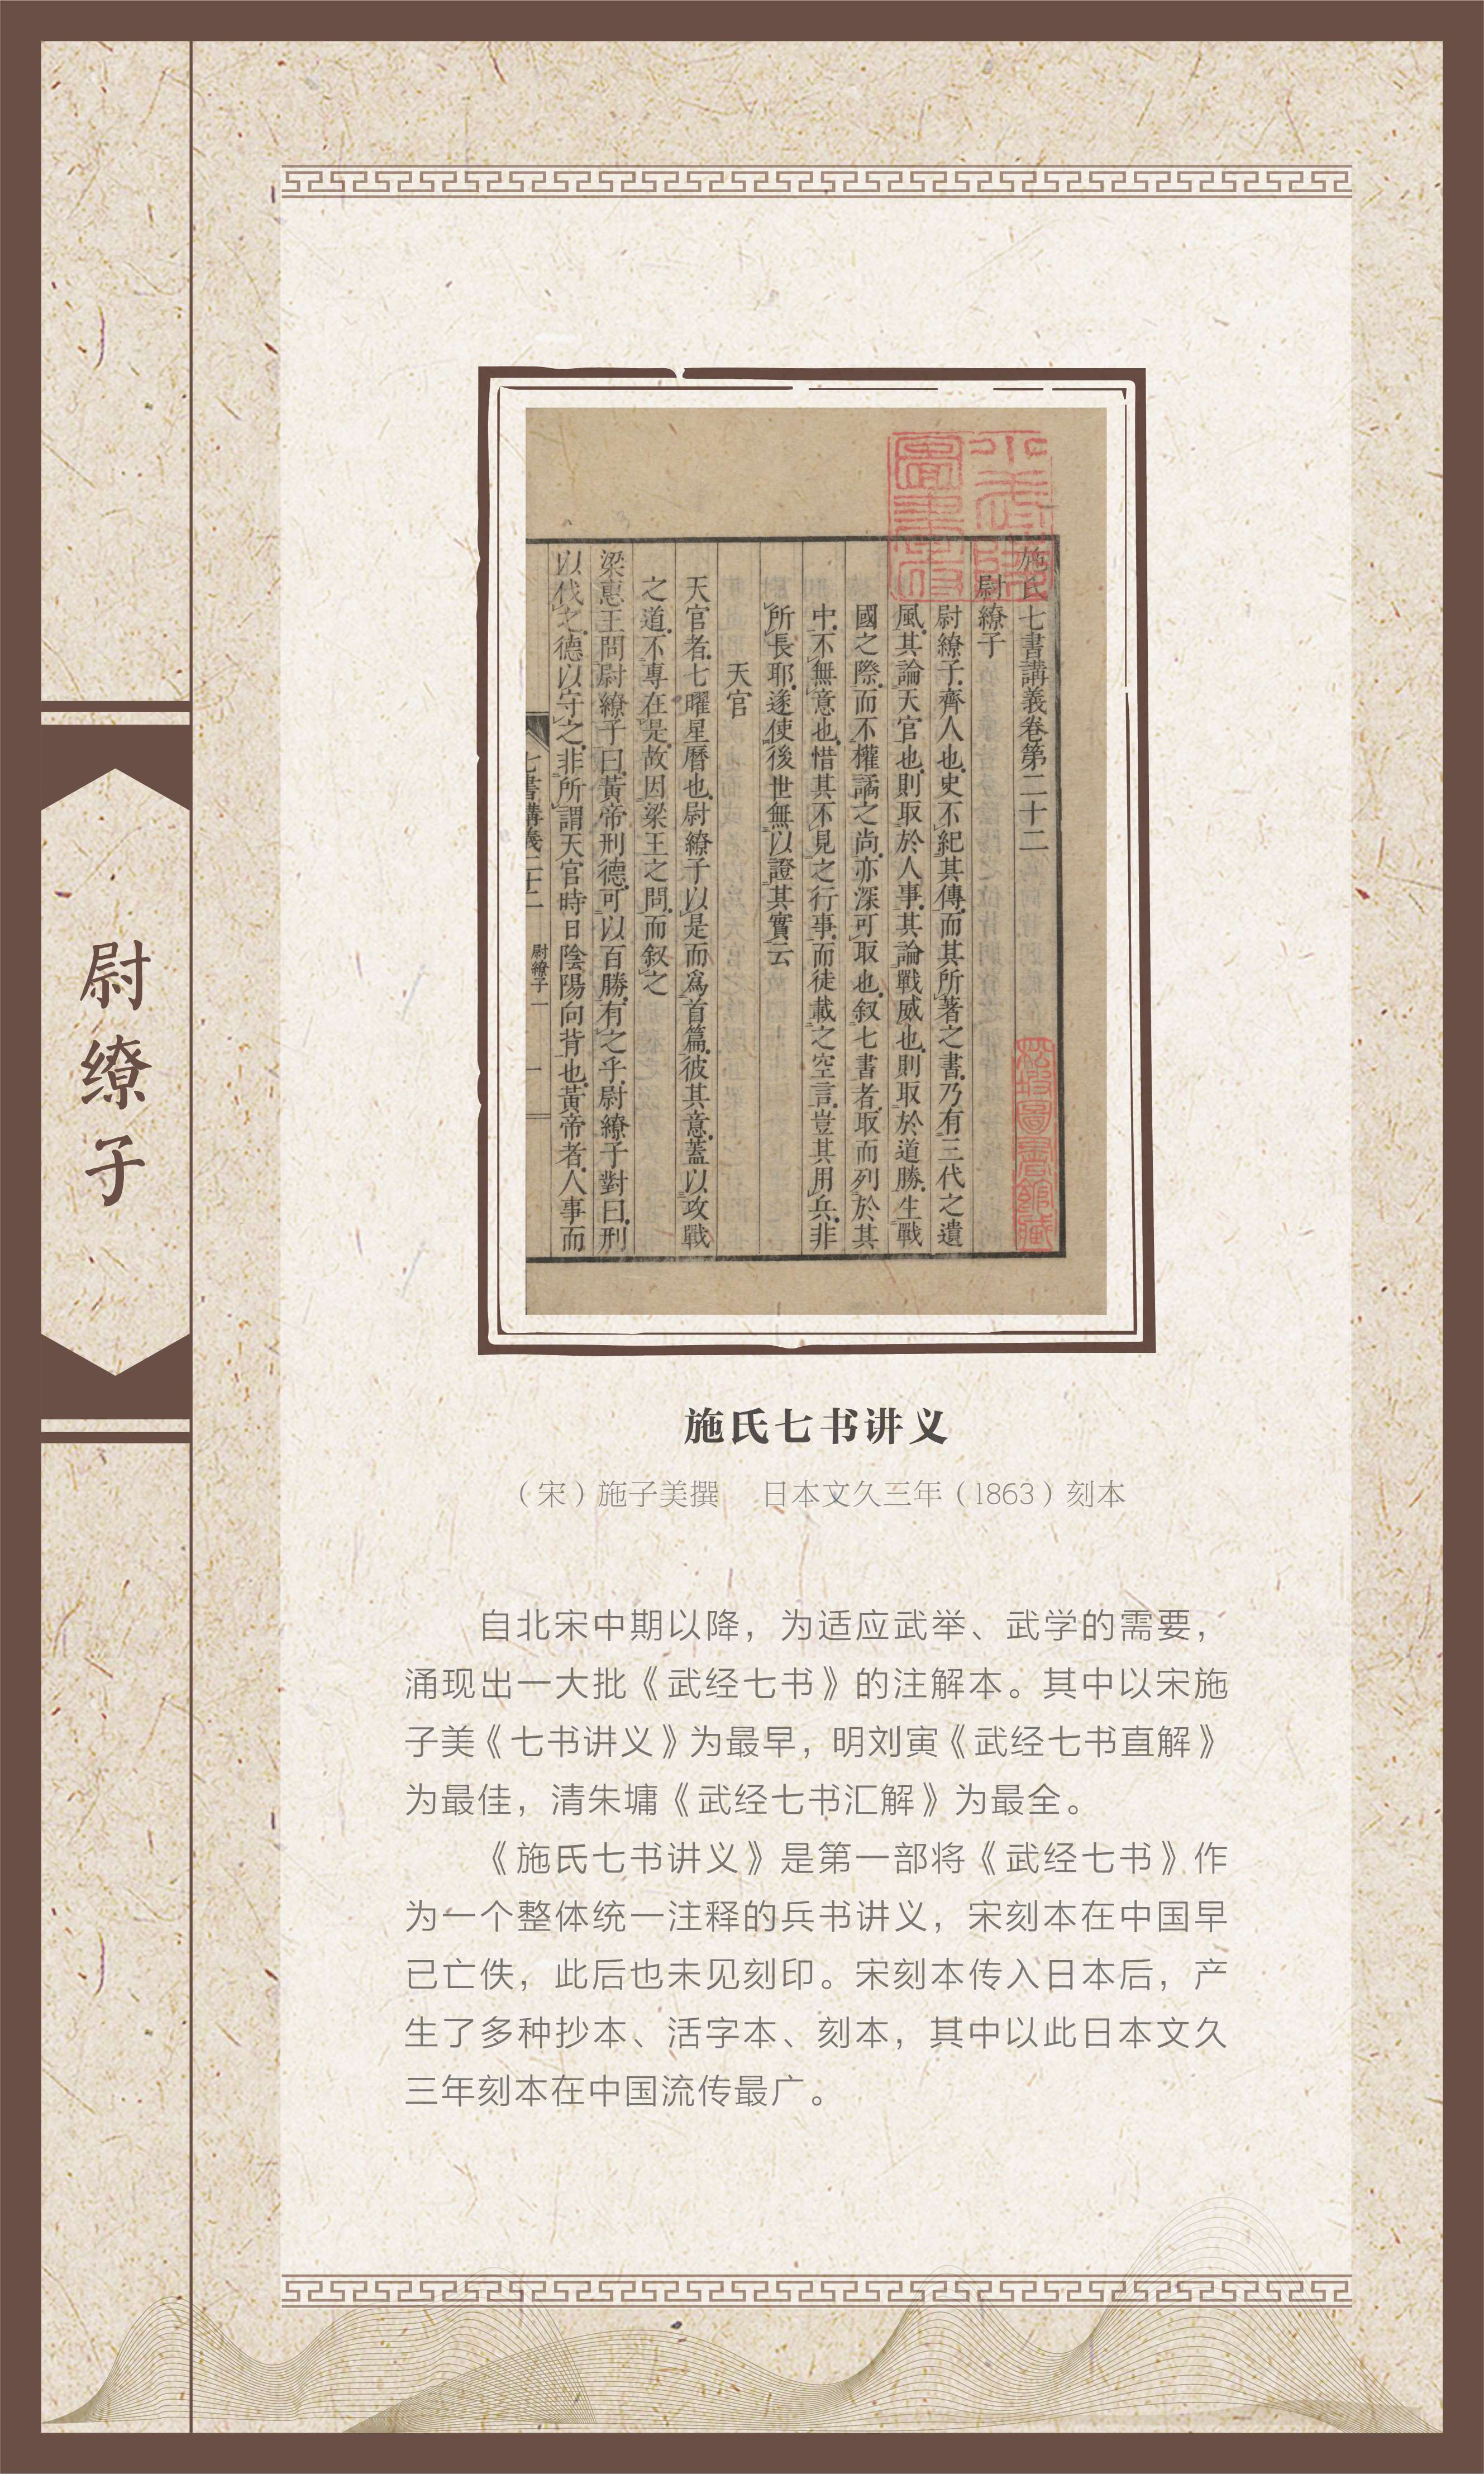 尉缭子
施氏七書講義卷第二十二
尉繚子
尉繚子齊人也史不紀其傳而其所著之書乃有三代之遺
風其論天官也則取於人事其論戰威也則取於道勝生戰
國之際而不權譎之尚亦深可取也叙七書者取而列於其
中不無意也惜其不見之行事而徒載之空言豈其用兵非
所長耶遂使後世無以證其實云
天官
天官者七曜星曆也尉繚子以是而為首篇彼其意蓋以攻戰
之道不專在是故因梁王之問而叙之
梁惠王問尉繚子曰黃帝刑德可以百勝有之乎尉繚子對曰刑
以伐之德以守之非所謂天官時日陰陽向背也黃帝者人事而
七書講義二十二 尉繚子一 一
松坡圖書館藏
施氏七书讲义
（宋）施子美撰 日本文久三年（1863）刻本
自北宋中期以降，为适应武举、武学的需要，
涌现出一大批《武经七书》的注解本。其中以宋施
子美《七书讲义》为最早，明刘寅《武经七书直解》
为最佳，清朱墉《武经七书汇解》为最全。
《施氏七书讲义》是第一部将《武经七书》作
为一个整体统一注释的兵书讲义，宋刻本在中国早
已亡佚，此后也未见刻印。宋刻本传入日本后，产
生了多种抄本、活字本、刻本，其中以此日本文久
三年刻本在中国流传最广。